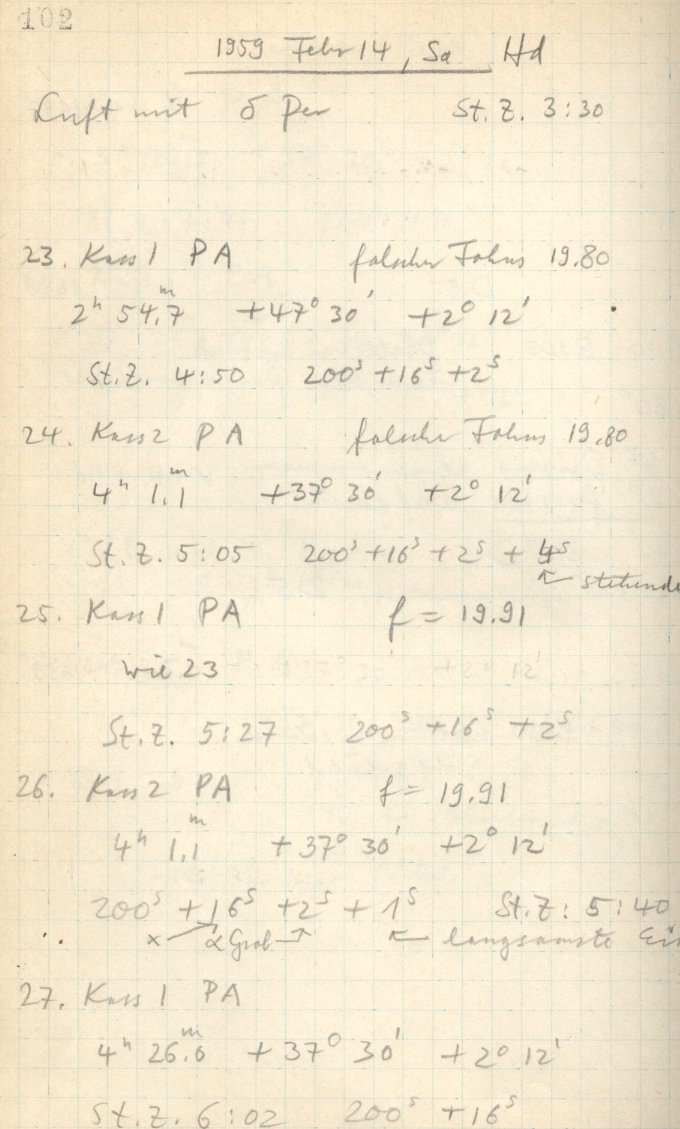 102
1959 Febr 14, Sa Hd
Luft mit δ Per St. Z. 3:30
23. Kass 1 PA falscher Fokus 19.80
2ʰ 54.7ᵐ +47° 30' +2° 12'
St. Z. 4:50 200ˢ +16ˢ +2ˢ
24. Kass 2 PA falscher Fokus 19.80
4ʰ 1.1ᵐ +37° 30' +2° 12'
St. Z. 5:05 200ˢ +16ˢ +2ˢ + 4ˢ
← stehende
25. Kass 1 PA f = 19.91
wie 23
St. Z. 5:27 200ˢ +16ˢ +2ˢ
26. Kass 2 PA f = 19.91
4ʰ 1.1ᵐ +37° 30' +2° 12'
200ˢ +16ˢ +2ˢ + 1ˢ St. Z: 5:40
× α Grob → ← langsamste Ei
27. Kass 1 PA
4ʰ 26.6ᵐ +37° 30' +2° 12'
St. Z. 6:02 200ˢ +16ˢ